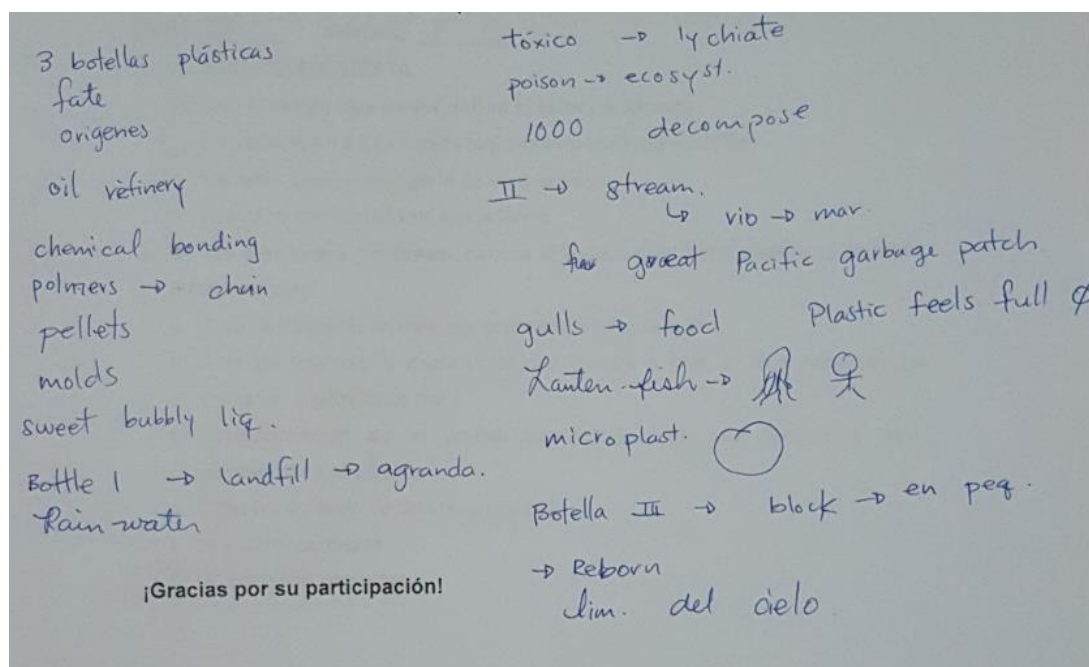 3 botellas plásticas
fate
origenes
oil refinery
chemical bonding
polmers → chain
pellets
molds
sweet bubbly liq.
Bottle 1 → landfill → agranda.
Rain water
¡Gracias por su participación!
tóxico → lychiate
poison → ecosyst.
1000 decompose
II → stream.
↳ rio → mar.
great Pacific garbage patch
gulls → food Plastic feels full
Lanten fish →
microplast.
Botella III → block → en peq.
→ Reborn
lim. del cielo